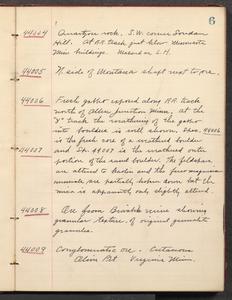 6
44004 Quartose rock. S.W. corner Soudan
Hill. At R.R. track just below Minnesota
Mine buildings.
44005 N. side of Montana shaft next to ore.
44006 Fresh gabbro exposed along R.R. track
north of Allen Junction, Minn., at the
"Y" track the weathering of the gabbro
into boulders is well shown. Spec. 44006
is the fresh core of a weathered boulder
44007 and Sp. 44007 is the weathered outer
portion of the same boulder. The feldspars
are altered to kaolin and the ferromagnesian
minerals are partially broken down but the
mica is apparently only slightly altered.
44008 Ore from Biwabik mine showing
granular texture, of original greenalite
granules.
44009 Conglomeratic ore. Cretaceous
Alpena Pit Virginia Minn.